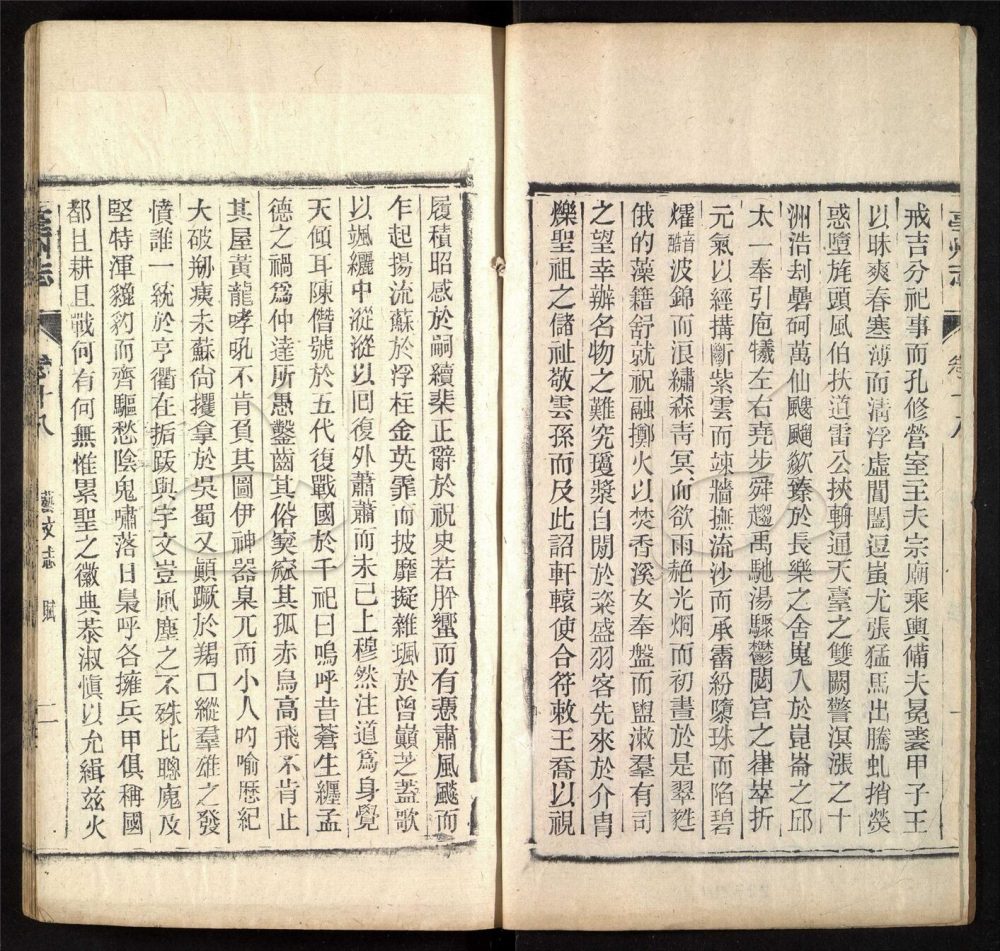 亳州志 卷十八 一
戒吉分祀事而孔修營室主夫宗廟乘輿備夫冕裘甲子王
以昧爽春寒薄而清浮虛閶闔逗蚩尤張猛馬出騰虬捎熒
惑墮旄頭風伯扶道雷公挾輈通天臺之雙闕警溟漲之十
洲浩刦礨砢萬仙颼飀歘臻於長樂之舍嵬入於崑崙之邱
太一奉引庖犧左右堯步舜趨禹馳湯驟鬱閟宮之律崒折
元氣以經搆斷紫雲而竦牆撫流沙而承霤紛墮珠而陷碧
燿音酷波錦而浪繡森靑冥而欲雨赩光烱而初晝於是翠甤
俄的藻籍舒就祝融擲火以焚香溪女奉盤而盥漱羣有司
之望幸辦名物之難究瓊漿自閒於粢盛羽客先來於介冑
爍聖祖之儲祉敬雲孫而及此詔軒轅使合符敕王喬以視
履積昭感於嗣續棐正辭於祝史若肸蠁而有憑肅風飈而
乍起揚流蘇於浮柱金英霏而披靡擬雜珮於曾巔芝蓋歌
以颯纚中漎漎以囘復外蕭蕭而未已上穆然注道爲身覺
天傾耳陳僭號於五代復戰國於千祀曰嗚呼昔蒼生纏孟
德之禍爲仲達所愚鑿齒其俗窫窳其孤赤烏高飛不肯止
其屋黃龍哮吼不肯負其圖伊神器臬兀而小人呴喻厯紀
大破瘡痍未蘇尙攫拏於吳蜀又顚蹶於羯口縱羣雄之發
憤誰一統於亨衢在拓跋與宇文豈風塵之不殊比聰廆及
堅特渾貙豹而齊驅愁陰鬼嘯落日梟呼各擁兵甲俱稱國
都且耕且戰何有何無惟累聖之徽典恭淑愼以允緝茲火
亳州志 卷十八 藝文志 賦 二